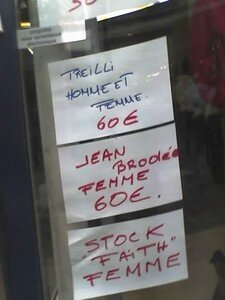 TREILLI
HOMME ET
FEMME.
60€
JEAN
BRODÉE
FEMME
60€.
STOCK
"FAITH"
FEMME